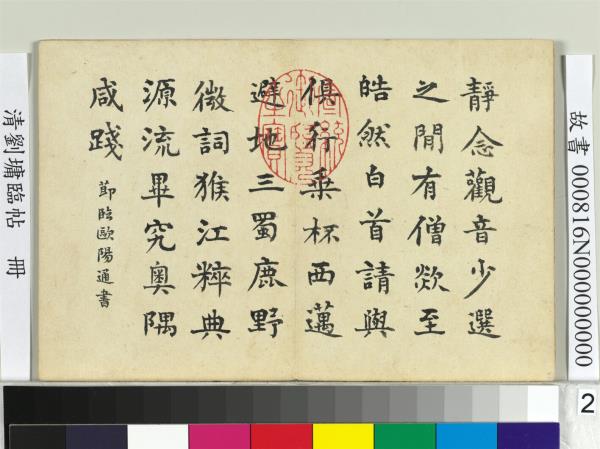 靜念觀音少選
之閒有僧欻至
皓然白首請與
俱行乗杯西邁
避地三蜀鹿野
微詞猴江粹典
源流畢究奧隅
咸踐
節臨歐陽通書
宣統御覽之寶
清劉墉臨帖 冊
故書 000816N000000000
2